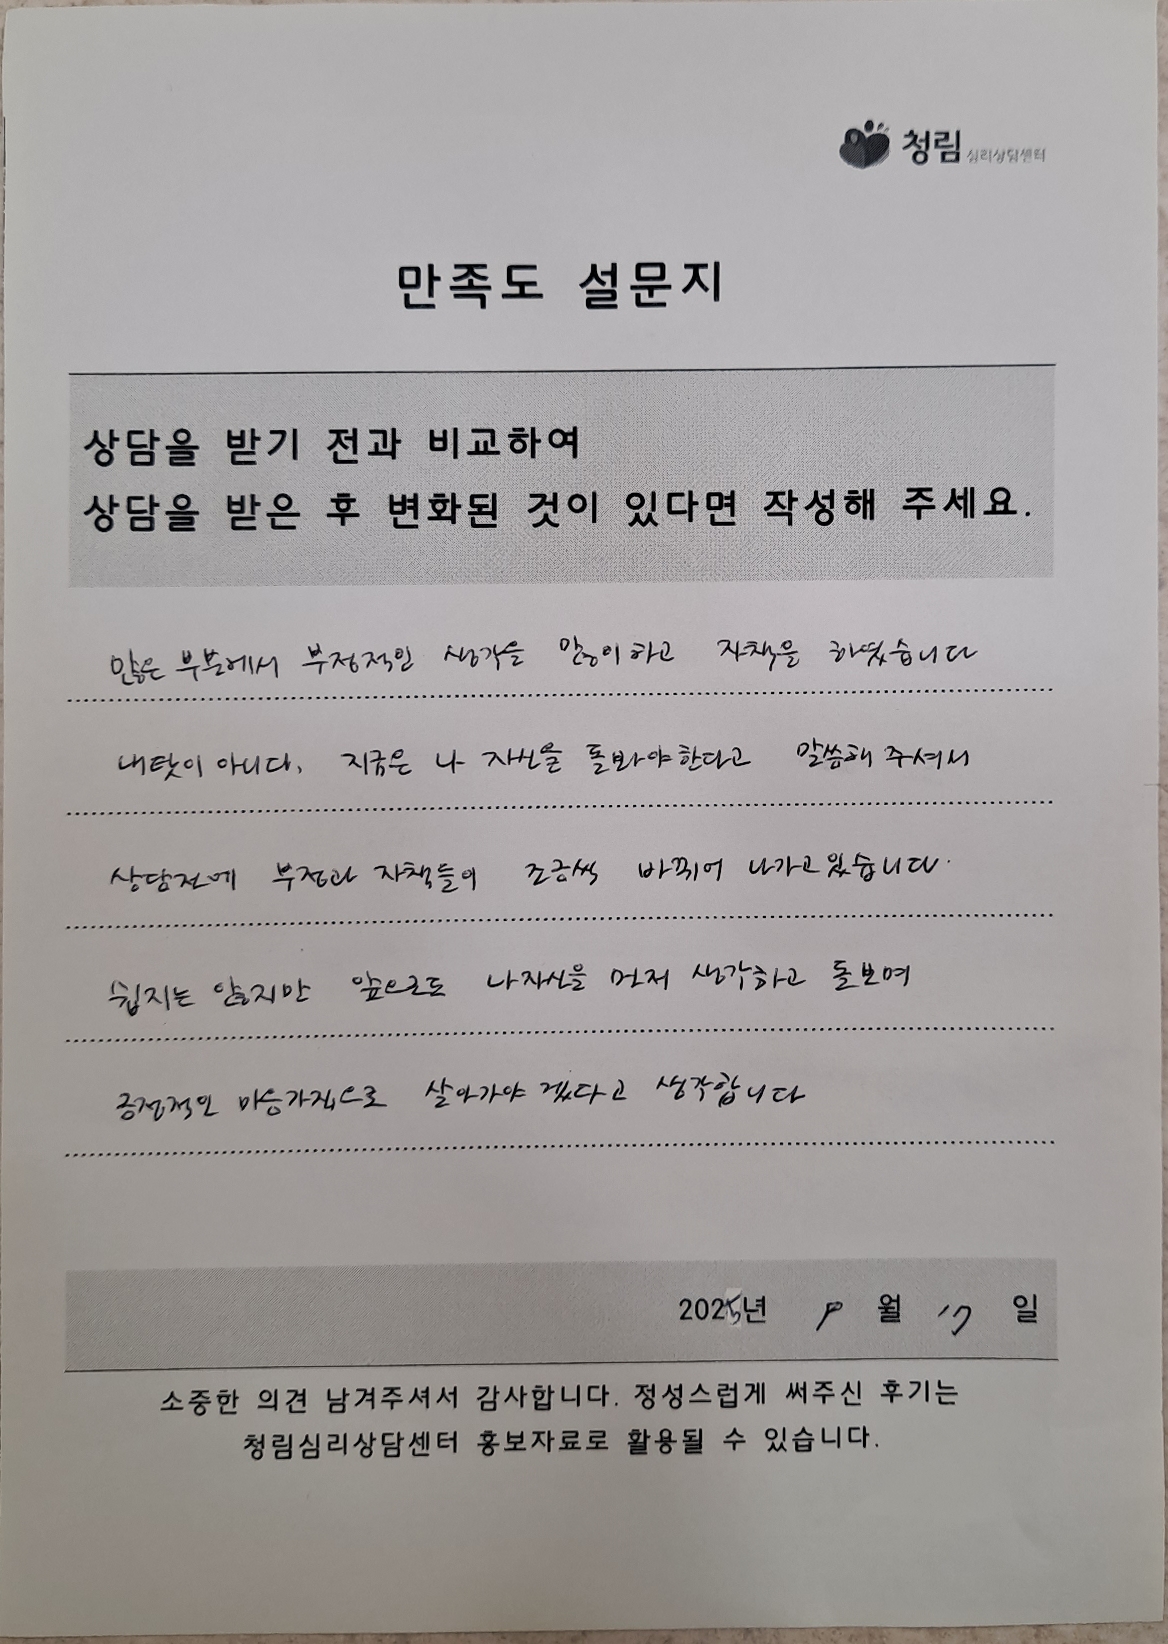 청림 심리상담센터
만족도 설문지
상담을 받기 전과 비교하여
상담을 받은 후 변화된 것이 있다면 작성해 주세요.
많은 부분에서 부정적인 생각을 많이하고 자책을 하였습니다
내탓이 아니다, 지금은 나 자신을 돌봐야한다고 말씀해 주셔서
상담전에 부정과 자책들이 조금씩 바뀌어 나가고있습니다.
쉽지는 않지만 앞으로도 나자신을 먼저 생각하고 돌보며
긍정적인 마음가짐으로 살아가야 겠다고 생각합니다
2025년 9월 17일
소중한 의견 남겨주셔서 감사합니다. 정성스럽게 써주신 후기는
청림심리상담센터 홍보자료로 활용될 수 있습니다.